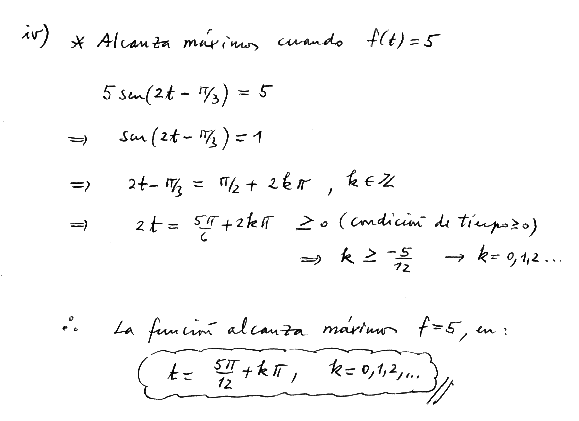 iv) * Alcanza máximos cuando f(t) = 5
5 sen(2t - π/3) = 5
⇒ sen(2t - π/3) = 1
⇒ 2t - π/3 = π/2 + 2kπ , k ∈ ℤ
⇒ 2t = 5π/6 + 2kπ ≥ 0 (condición de tiempo ≥ 0)
⇒ k ≥ -5/12 → k = 0,1,2...
∴ La función alcanza máximos f=5, en:
t = 5π/12 + kπ, k=0,1,2,...